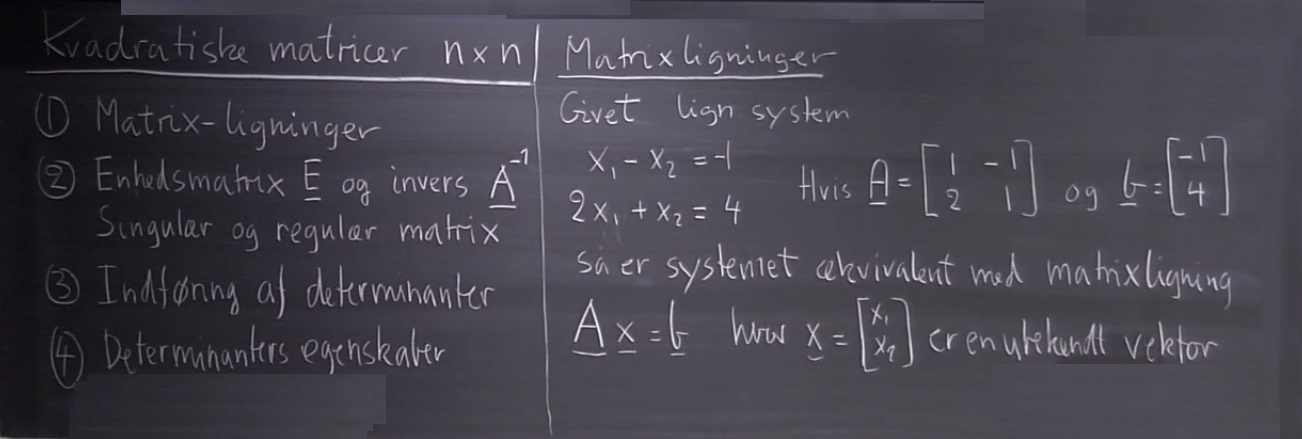 Kvadratiske matricer n×n
① Matrix-ligninger
② Enhedsmatrix E og invers A⁻¹
Singulær og regulær matrix
③ Indføring af determinanter
④ Determinanters egenskaber
Matrixligninger
Givet lign system
x₁ - x₂ = -1
2x₁ + x₂ = 4
Hvis A = [1 -1; 2 1] og b = [-1; 4]
så er systemet ækvivalent med matrixligning
A x = b hvor x = [x₁; x₂] er en ubekendt vektor